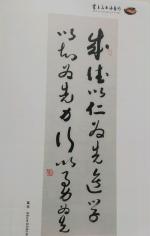 成德以仁为先进学
以知为先力行以勇为先